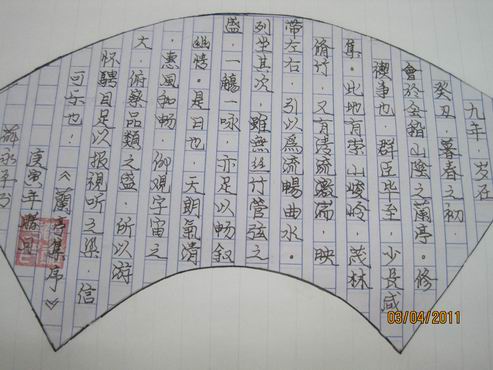 九年，岁在
癸丑，暮春之初，
會於会稽山陰之蘭亭。修
禊事也，群臣毕至，少長咸
集。此地有崇山峻岭，茂林
脩竹，又有清流激湍，映
带左右，引以為流暢曲水。
列坐其次，雖無丝竹管弦之
盛，一觴一咏，亦足以畅叙
幽情。是日也，天朗氣清
，惠風和暢，仰觀宇宙之
大，俯察品類之盛，所以游
怀騁目足以报視听之，信
可乐也！《蘭亭集序》
庚寅年腊月
03/04/2011